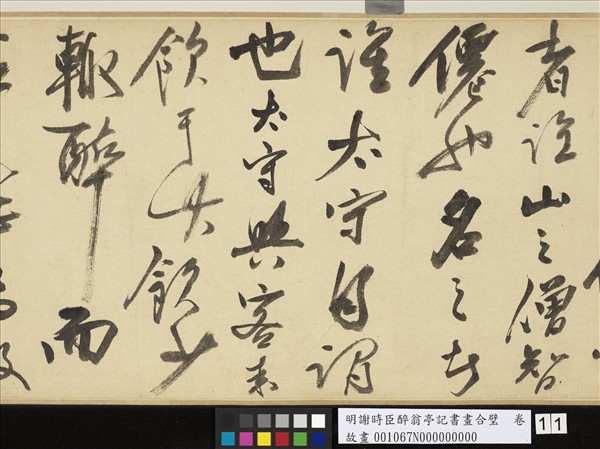 者誰山之僧智
僊也名之者
誰太守自謂
也太守與客来
飲于此飲少
輒醉而
明謝時臣醉翁亭記書畫合璧 卷
故畫 001067N000000000
11